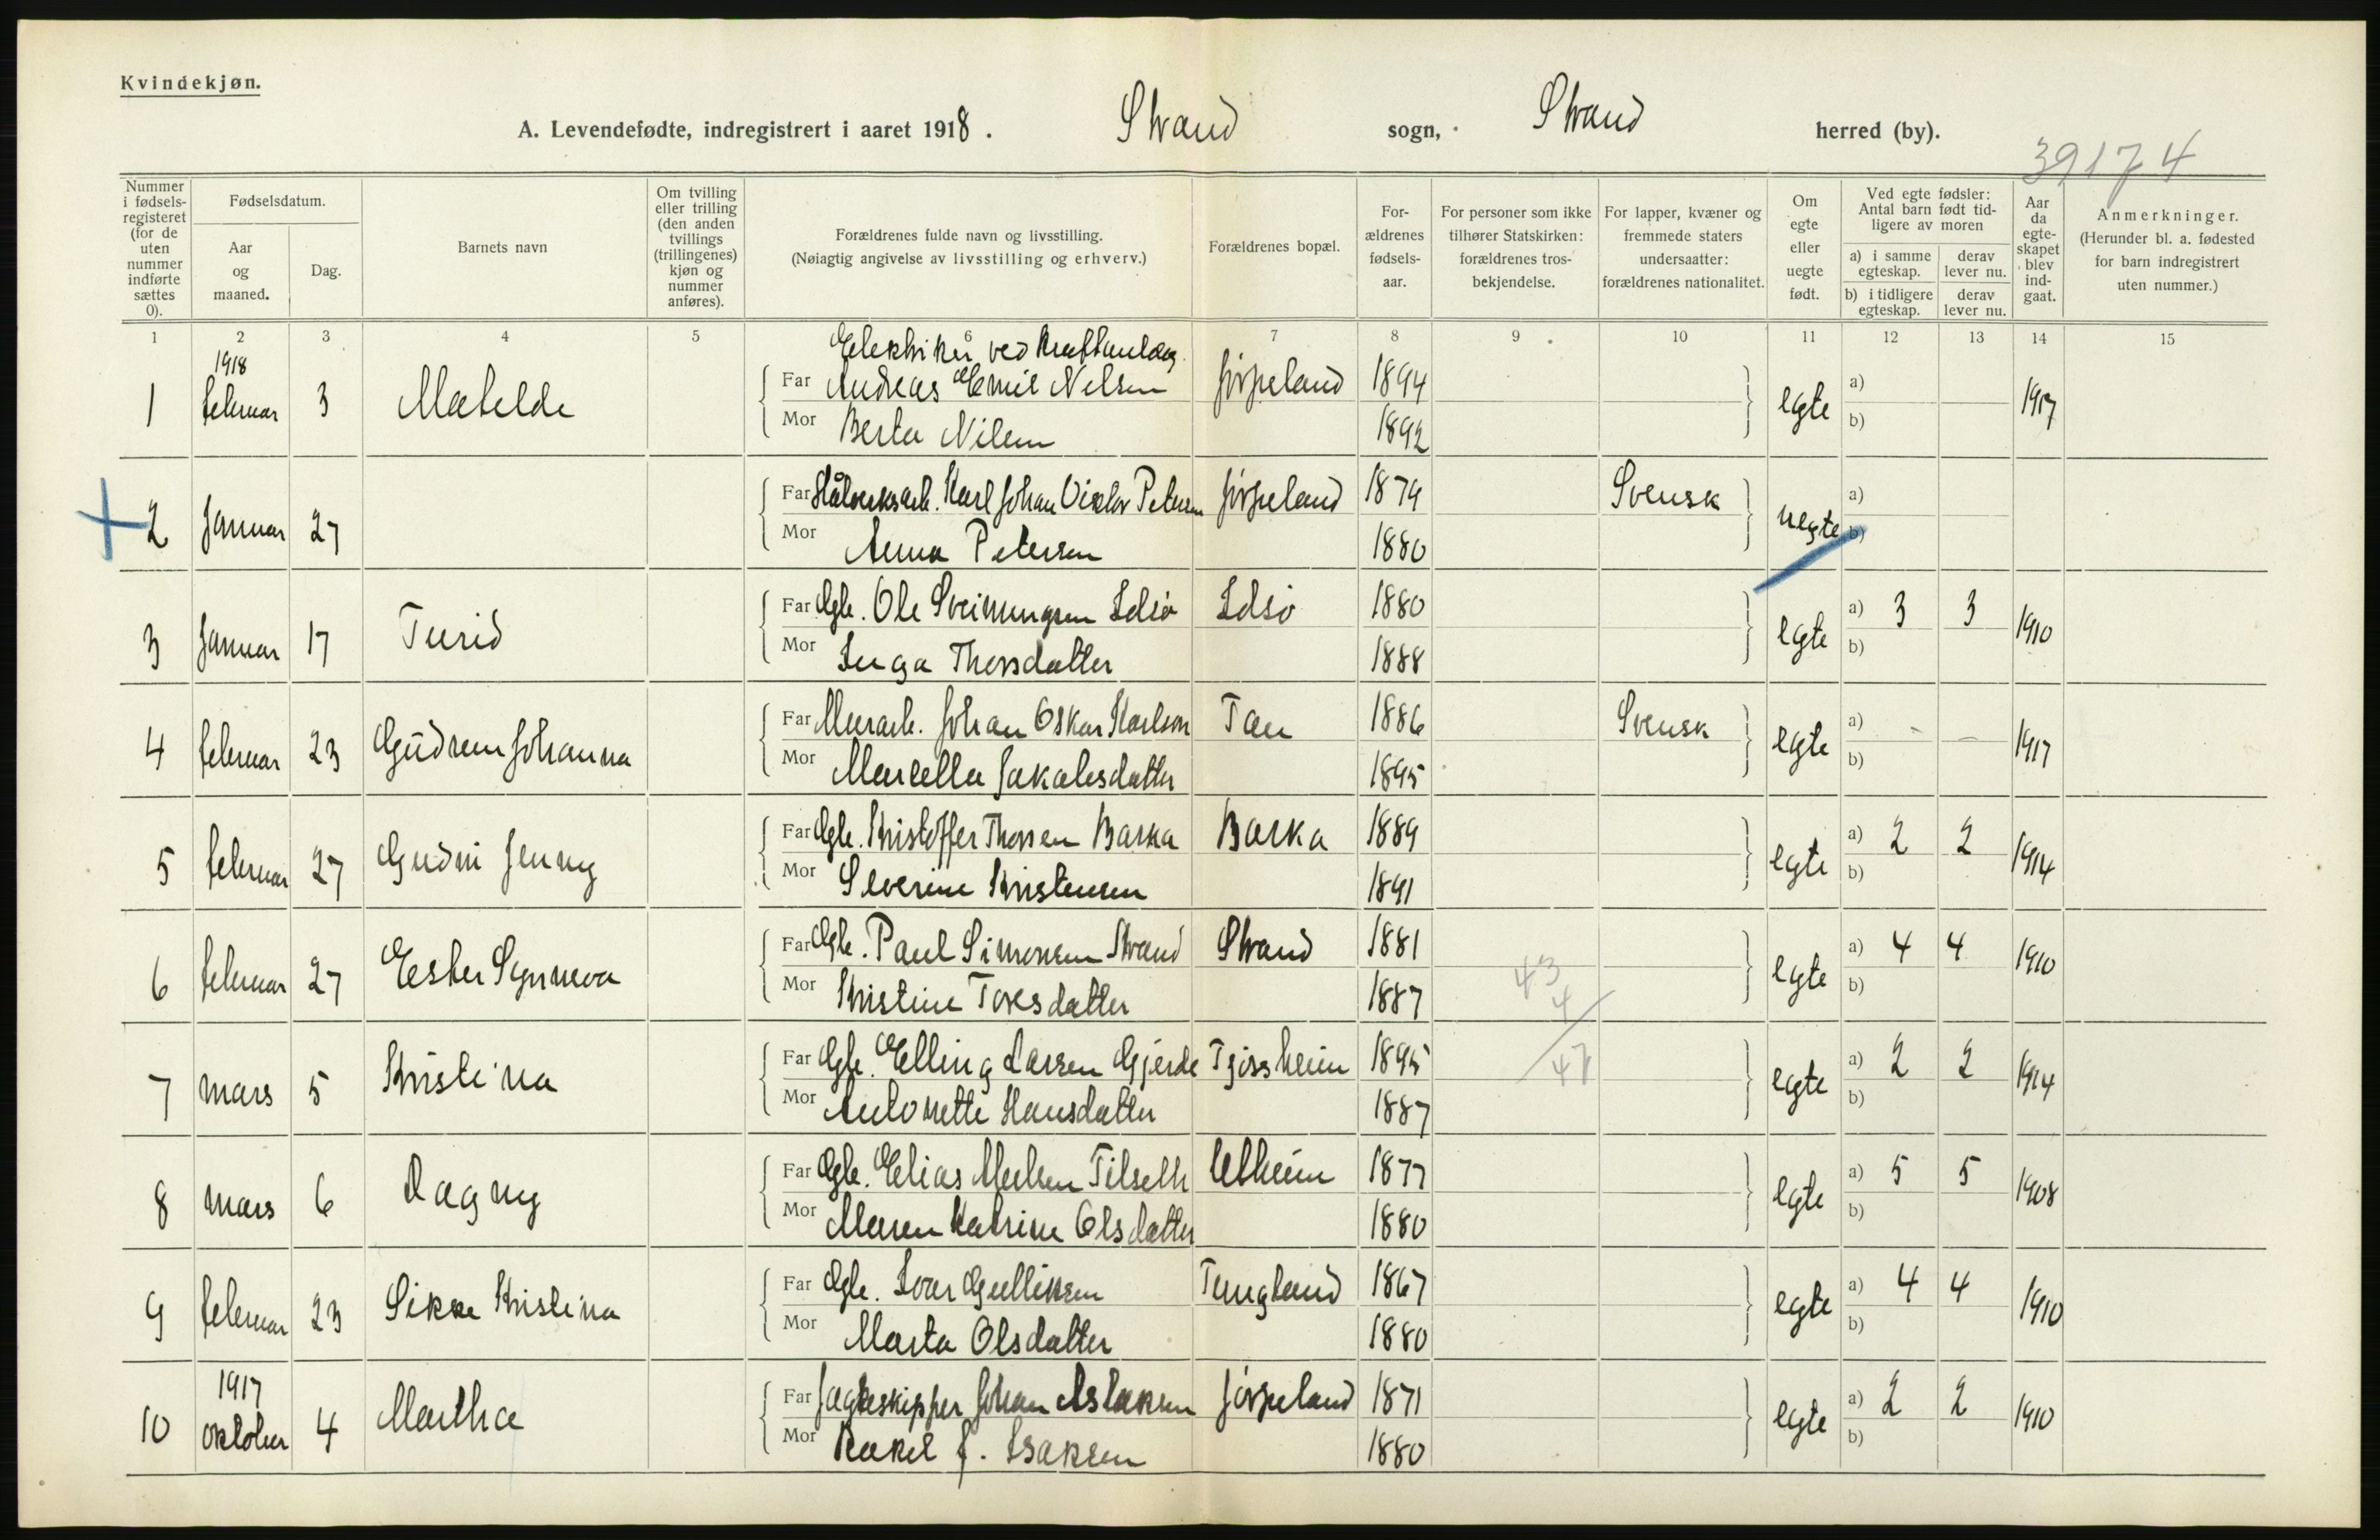 Kvindekjøn.
A. Levendefødte, indregistrert i aaret 1918. Strand sogn, Strand herred (by).
39174
Nummer i fødselsregisteret (for de uten nummer indførte sættes 0).
Fødselsdatum.
Aar og maaned.
Dag.
Barnets navn
Om tvilling eller trilling (den anden tvillings (trillingenes) kjøn og nummer anføres).
Forældrenes fulde navn og livsstilling.
(Nøiagtig angivelse av livsstilling og erhverv.)
Forældrenes bopæl.
Forældrenes fødselsaar.
For personer som ikke tilhører Statskirken: forældrenes trosbekjendelse.
For lapper, kvæner og fremmede staters undersaatter: forældrenes nationalitet.
Om egte eller uegte født.
Ved egte fødsler: Antal barn født tidligere av moren
a) i samme egteskap.
derav lever nu.
b) i tidligere egteskap.
derav lever nu.
Aar da egteskapet blev indgaat.
Anmerkninger.
(Herunder bl. a. fødested for barn indregistrert uten nummer.)
1 2 3 4 5 6 7 8 9 10 11 12 13 14 15
Elektriker ved Kraftanlæg
1 1918 februar 3 Matelde Far Andreas Emil Nelsen Jørpeland 1894 egte a) 1917
Mor Berta Nilsen 1892 b)
2 Januar 27 Far Stålverksarb. Karl Johan Victor Petersen Jørpeland 1879 Svensk uegte a)
Mor Anna Petersen 1880 b)
3 Januar 17 Turid Far Gbr. Ole Sveinungsen Idsø Idsø 1880 egte a) 3 3 1910
Mor Inga Thorsdatter 1888 b)
4 februar 23 Gudrun Johanna Far Murarb. Johan Oskar Karlson Tau 1886 Svensk egte a) - - 1917
Mor Marcella Jakobsdatter 1895 b)
5 februar 27 Gudni Jenny Far Gbr. Kristoffer Thorsen Barka Barka 1889 egte a) 2 2 1914
Mor Severine Kristensen 1891 b)
6 februar 27 Ester Synneva Far Gbr. Paul Simonsen Strand Strand 1881 egte a) 4 4 1910
Mor Kristine Torsdatter 1887 b)
43
4
47
7 mars 5 Kristina Far Gbr. Elling Larsen Gjerde Tjøssheim 1895 egte a) 2 2 1914
Mor Antonette Hansdatter 1887 b)
8 mars 6 Dagny Far Gbr. Elias Tilseth 1877 egte a) 5 5 1908
Mor Maren Katrine Olsdatter 1880 b)
9 februar 23 Sikke Kristina Far Gbr. Ivar Gulliksen Tungland 1867 egte a) 4 4 1910
Mor Marta Olsdatter 1880 b)
10 1917 oktober 4 Martha Far Jagteskipper Johan Aslaksen Jørpeland 1871 egte a) 2 2 1910
Mor Rakel J. Isaksen 1880 b)